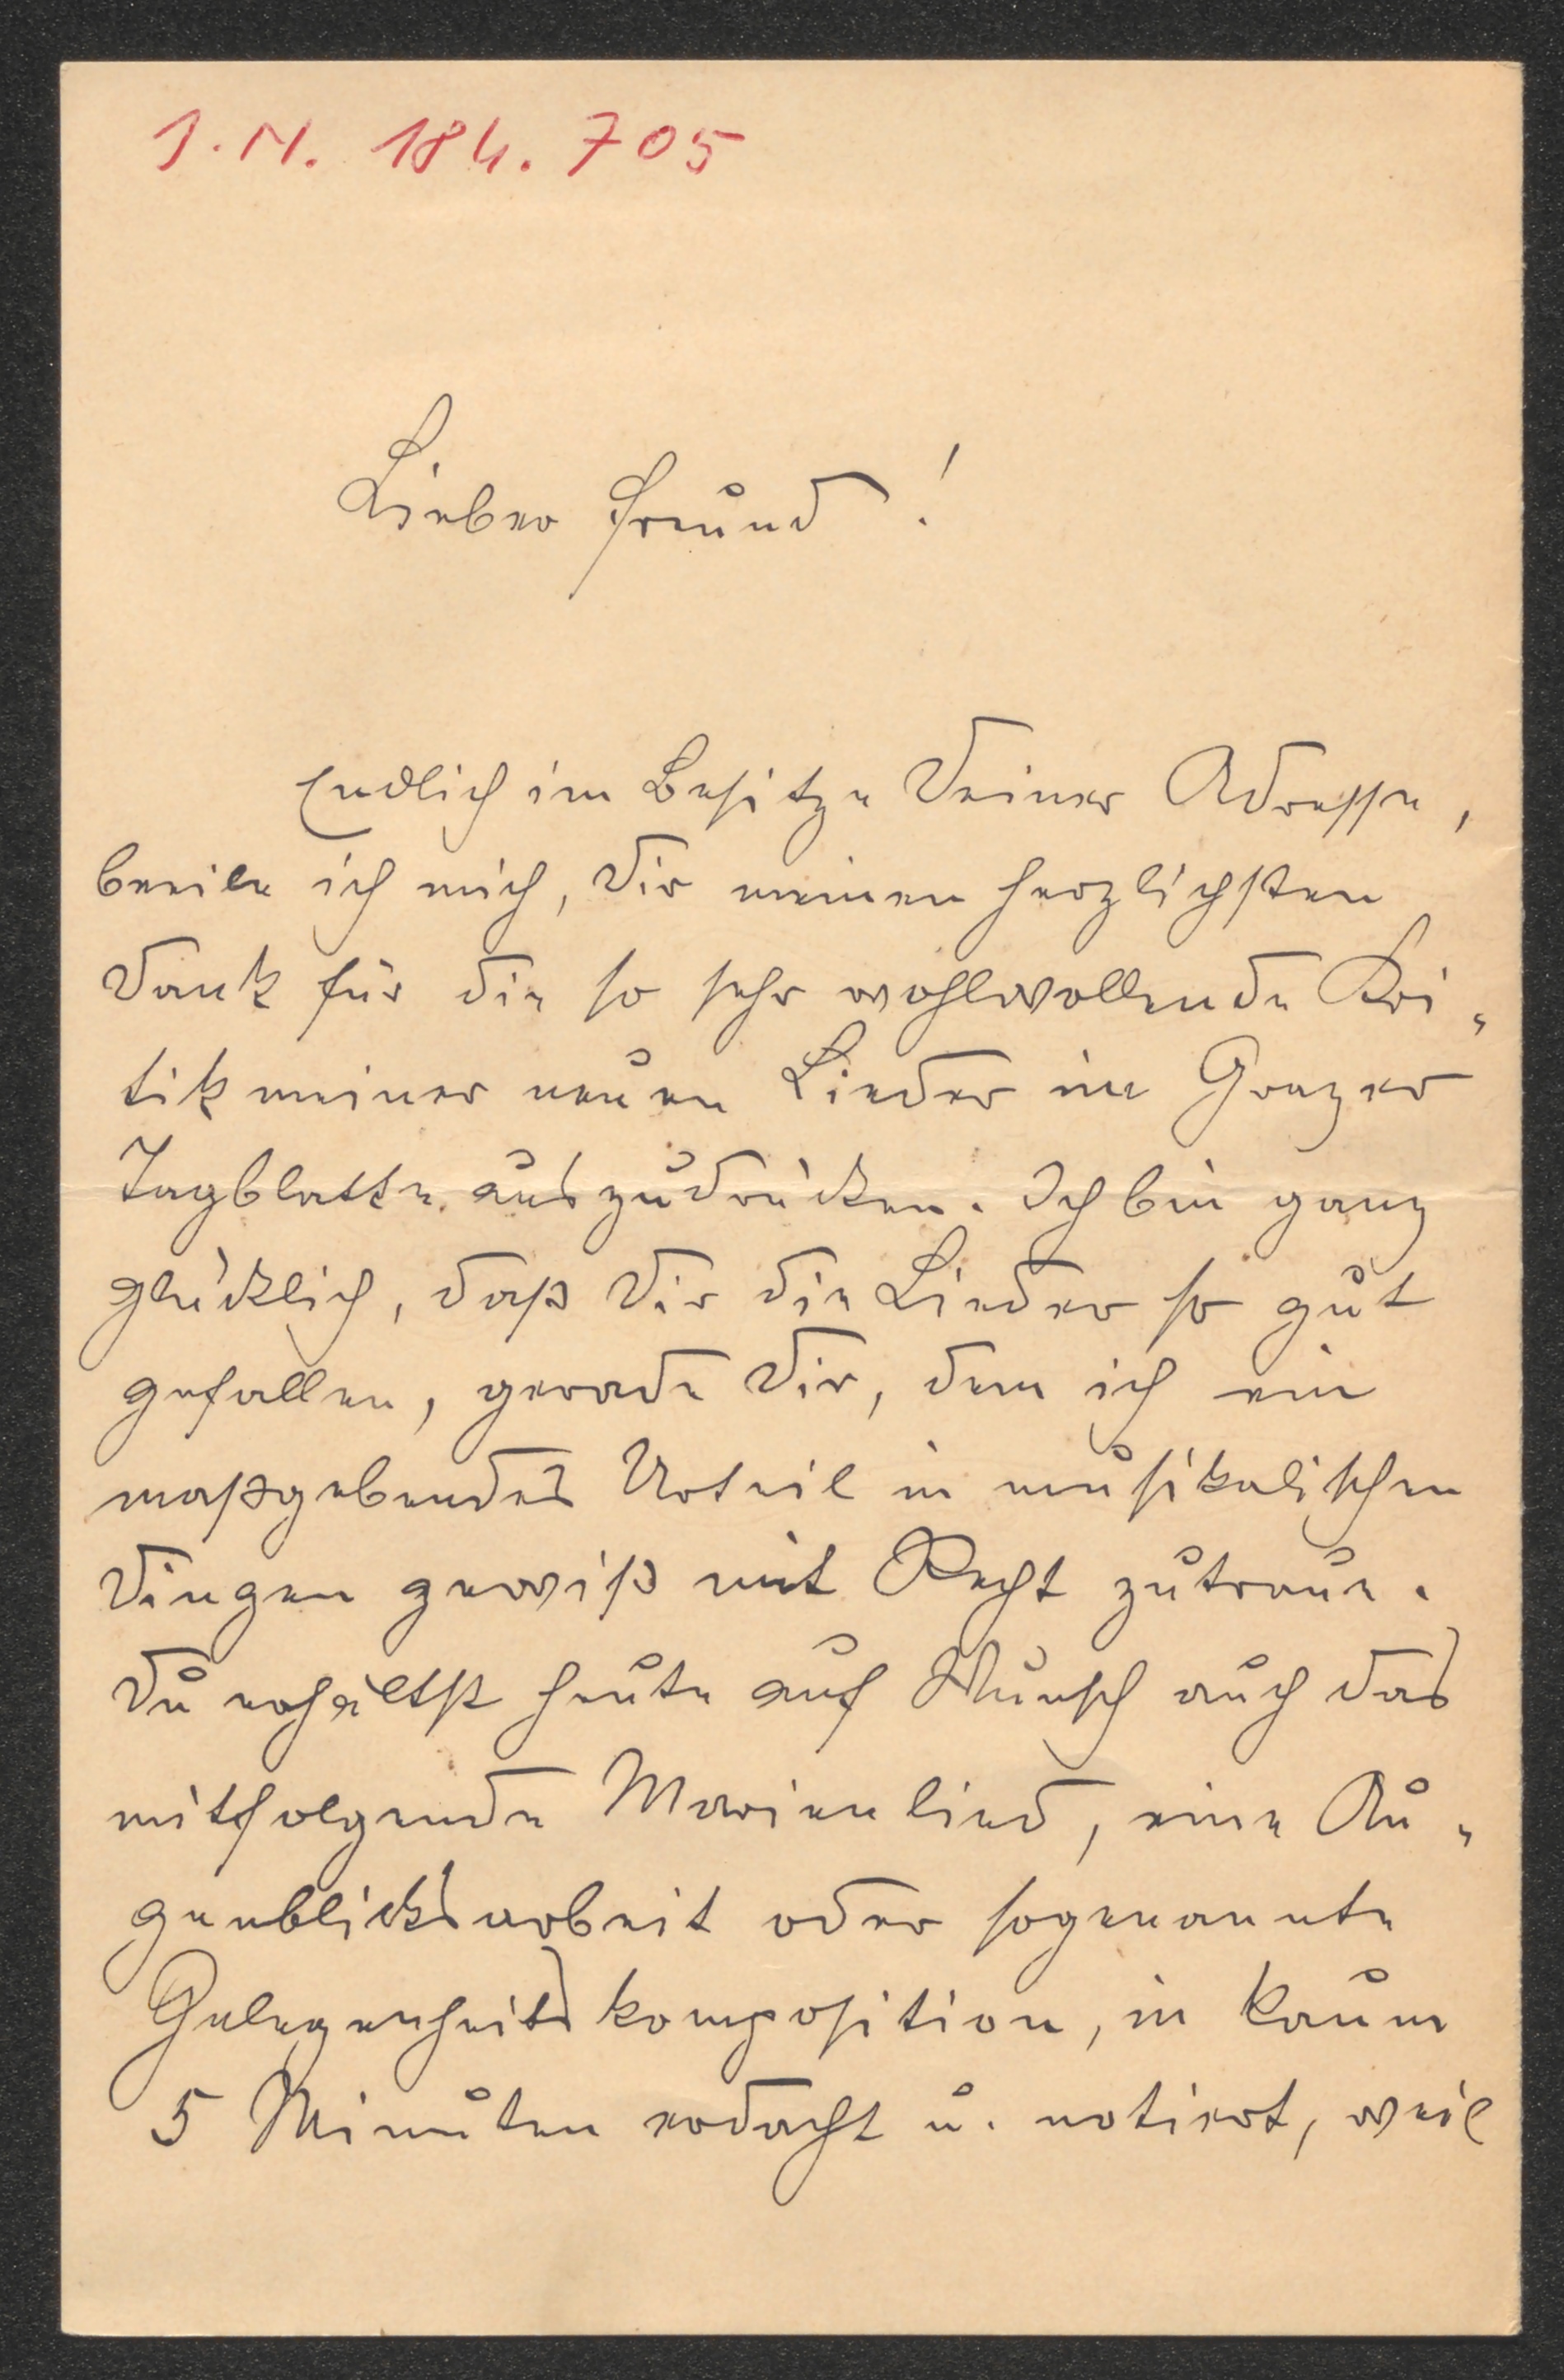 I.N. 184.705
Lieber Freund!
Endlich im Besitze Deiner Adresse,
beeile ich mich, Dir meinen herzlichsten
Dank für die so sehr wohlwollende Kri-
tik meiner neuen Lieder im Grazer
Tagblatte auszudrücken. Ich bin ganz
glücklich, daß Dir die Lieder so gut
gefallen, gerade Dir, dem ich ein
maßgebendes Urteil in musikalischen
Dingen gewiß mit Recht zutraue.
Du erhältst heute auf Wunsch auch das
mitfolgende Marienlied, eine Au-
genblicksarbeit oder sogenannte
Gelegenheitskomposition, in kaum
5 Minuten erdacht u. notiert, weil